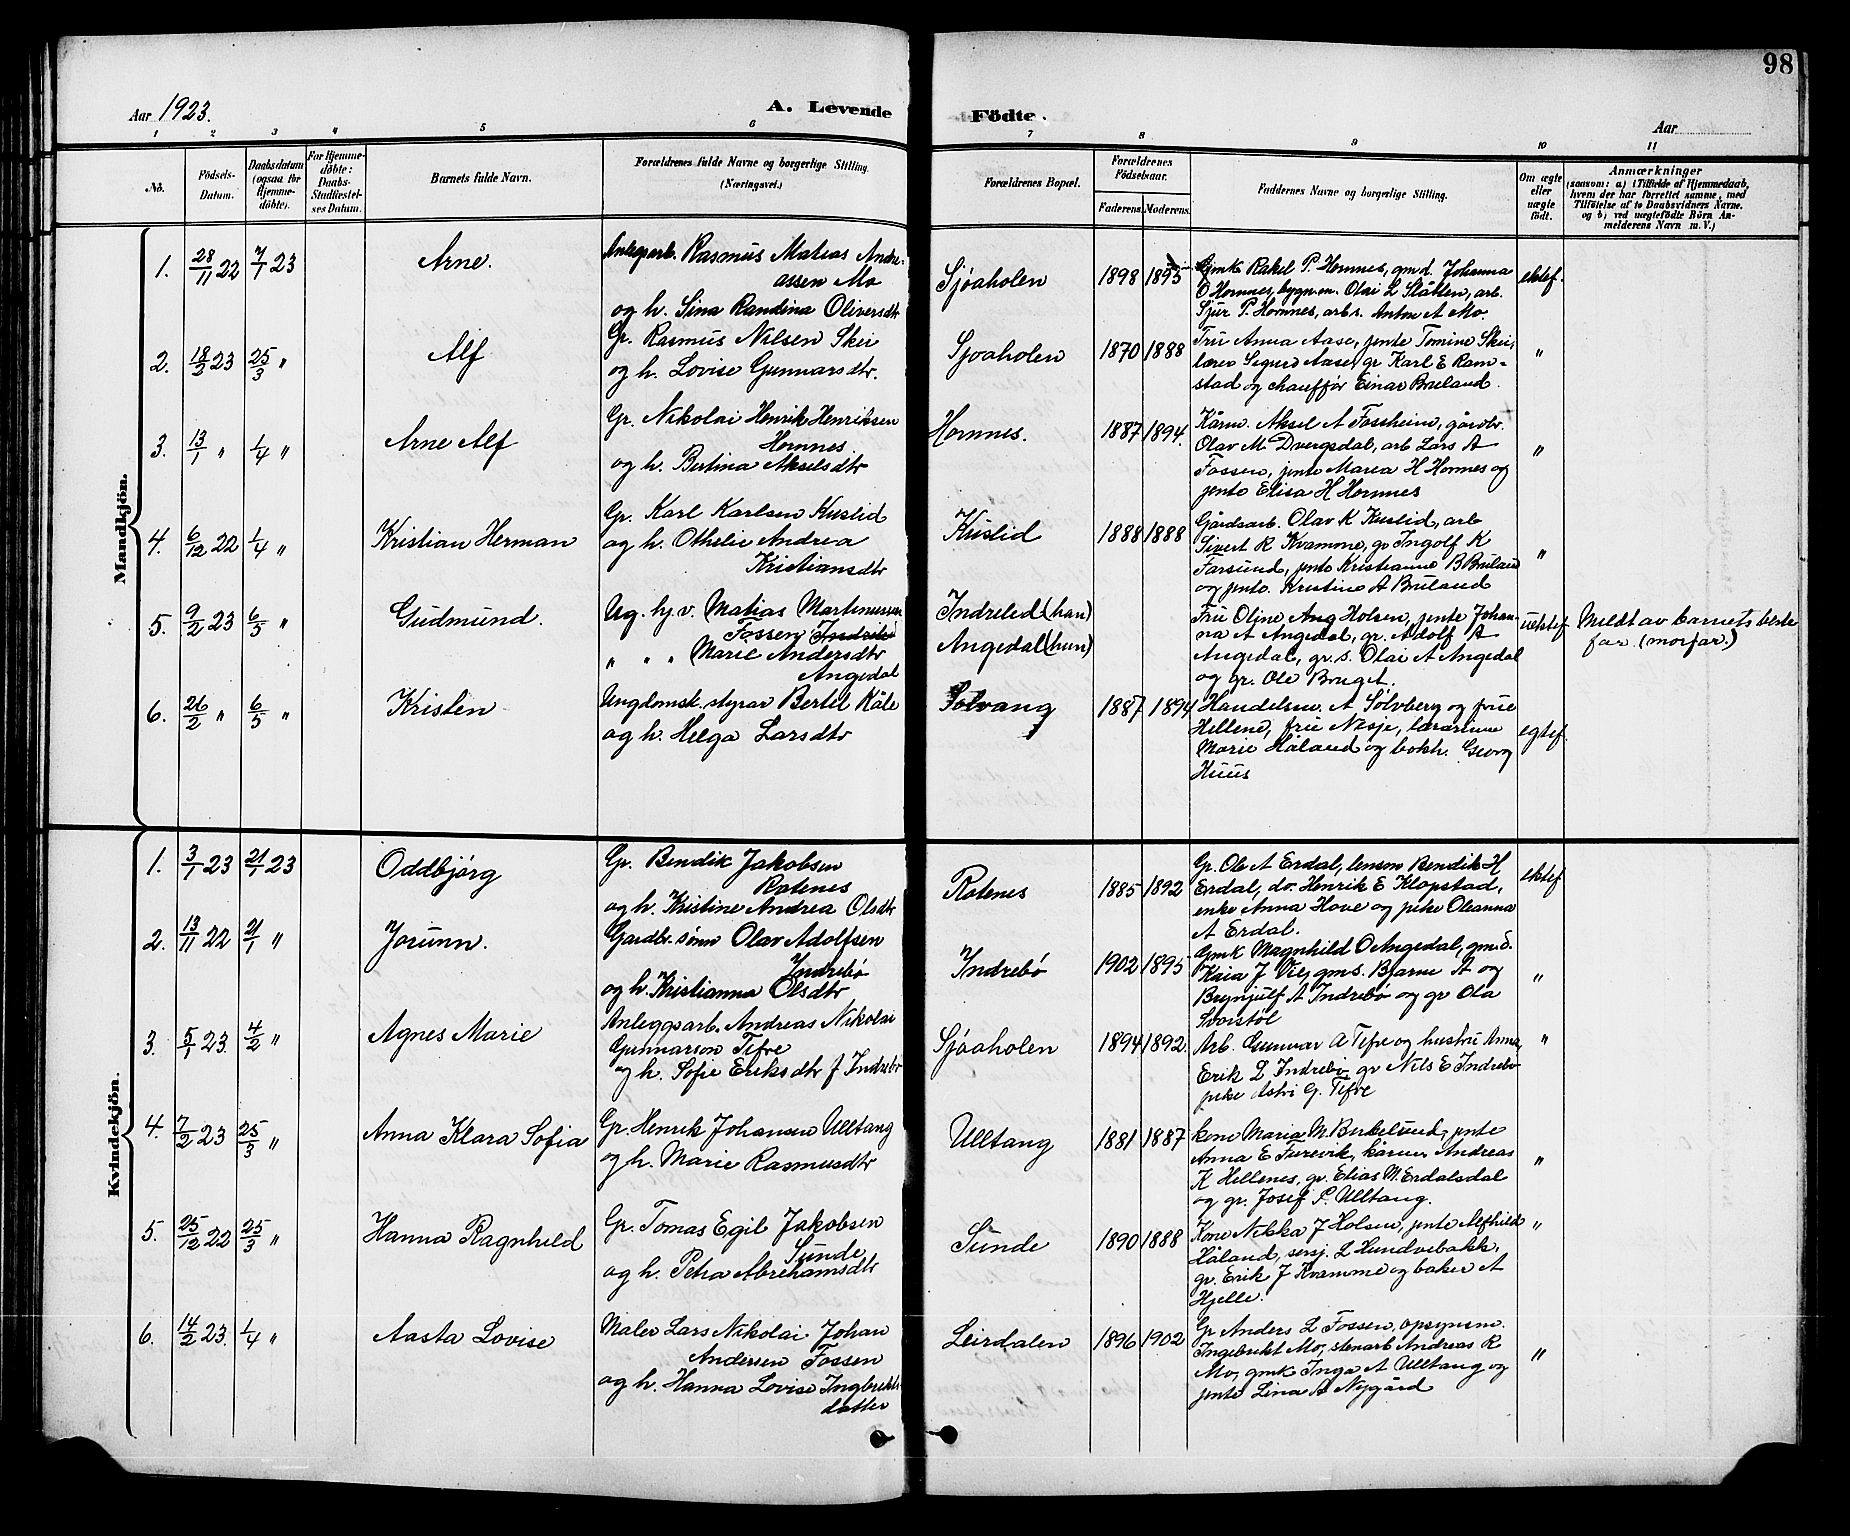 98
Aar 1923.
A. Levende Födte.
Aar
1 2 3 4 5 6 7 8 9 10 11
No.
Födsels-Datum.
Daabsdatum (ogsaa for Hjemmedöbte).
For Hjemmedöbte: Daabs-Stadfæstelses Datum.
Barnets fulde Navn.
Forældrenes fulde Navne og borgerlige Stilling. (Næringsvei.)
Forældrenes Bopæl.
Forældrenes Födselsaar.
Faderens. Moderens.
Faddernes Navne og borgerlige Stilling.
Om ægte eller uægte födt.
Anmærkninger
(saasom: a) i Tilfælde af Hjemmedaab, hvem der har forrettet samme, med Tilföielse af to Daabsvidners Navne. og b) ved uægtefödte Börn Anmelderens Navn m. V.)
Mandkjön.
1. 28/11 22 7/1 23 Arne.
Anlegsarb. Rasmus Matias Andreassen Mo
og h. Sina Randina Oliversdtr
Sjøaholen 1898 1895
Gmk Rakel P. Hornnes, gm.d. Johanna
O Hornnes, bygn.m. Olai L Slåtten, arb.
Sjur P. Hornnes, arb s. Anton A Mo.
ektef.
2. 18/2 23 25/3 " Alf
Gr. Rasmus Nilsen Skei
og h. Lovise Gunnarsdtr.
Sjøaholen 1870 1888
Fru Anna Aase, jente Tomine Skei,
lærer Sigurd Aase, gr Karl E Ramstad og chauffør Einar Bruland.
"
3. 13/1 " 1/4 " Arne Alf
Gr. Nikolai Henrik Henriksen
Hornnes
og h. Bertina Akselsdtr
Hornnes. 1887 1894.
Kårm. Aksel A Fossheim, gårdbr.
Olav M Dvergsdal, arb Lars A
Fossen, jente Maria H Hornnes og
jente Elisa H Hornnes
"
4. 6/12 22 1/4 " Kristian Herman
Gr. Karl Karlsen Kuslid
og h. Othelie Andrea
Kristiansdtr
Kuslid 1888 1888
Gårdsarb. Olav K Kuslid, arb
Sivert R Kvamme, gr Ingolf K
Farsund, jente Kristianne B Bruland
og jente. Kristine A Bruland
"
5. 9/2 23 6/5 " Gudmund.
Ug. hj.v. Matias Martinussen
Fossen
" " " Marie Andersdtr
Angedal
Indrelid (han)
Angedal (hun)
Fru Oline Aug Holsen, jente Johanna A Angedal, gr. Adolf A
Angedal, gr. s. Olai A Angedal
og gr. Ole Bruget.
uektef
Meldt av barnets bestefar. (morfar.)
6. 26/2 " 6/5 " Kristen
Ungdomsk. styrar Bertel Kåle
og h. Helga Larsdtr
Solvang 1887 1894
Handelsm. A Sølvberg og frue
Hellene, frue Nesje, lærarinne
Marie Håland og bokh. Georg
Huus
egtef.
Kvindekjön.
1. 3/1 23 21/1 23 Oddbjörg
Gr. Bendik Jakobsen
Rotenes
og h. Kristine Andrea Olsdtr
Rotenes 1885 1892
Gr. Ole A Erdal, lensm Bendik H
Erdal, do. Henrik E Klopstad,
enke Anna Hove og pike Oleanna
A Erdal.
ektef
2. 13/11 22 21/1 " Jorunn.
Gardbr. sønn Olav Adolfsen
Indrebø
og h. Kristianna Olsdtr
Indrebø 1902 1895
Gmk Magnhild O Angedal, gm.d.
Kaia J Vie, gm s. Bjarne A og
Brynjulf A Indrebø og gr Ola
Svorstøl
"
3. 5/1 23. 4/2 " Agnes Marie
Anleggsarb. Andreas Nikolai
Gunnarson Tefre
og h. Sofie Eriksdtr f Indrebø
Sjøaholen 1894 1892.
Arb. Gunnar A Tefre og hustru Anna,
Erik L Indrebø, gr Nils E Indrebø
pike Astri G. Tefre
"
4. 7/2 23 25/3 " Anna Klara Sofia
Gr. Henrik Johansen Ulltang
og h. Marie Rasmusdtr
Ulltang 1881 1887
kone Maria M. Birkelund, jente
Anna E Furevik, kårm. Andreas
K Hellenes, gr. Elias M. Erdalsdal
og gr. Josef P. Ulltang.
"
5. 25/12 22 25/3 " Hanna Ragnhild
Gr. Tomas Egil Jakobsen
Sunde
og h. Petra Abrehamsdtr
Sunde 1890 1888
Kone Nikka J Holsen, jente Alfhild
Håland, sersj. L Hundvebakk,
gr. Erik J Kvamme og baker A
Hjelle.
"
6. 14/2 23. 1/4 " Aasta Lovise
Maler Lars Nikolai Johan
Andersen Fossen
og h. Hanna Lovise Ingbriktsdatter
Leirdalen 1896 1902
Gr Anders L Fossen, opsynsm.
Ingebrikt Mo, stenarb Andreas R
Mo, gmk Inga A Ulltang og
jente Lina A Nygård
"